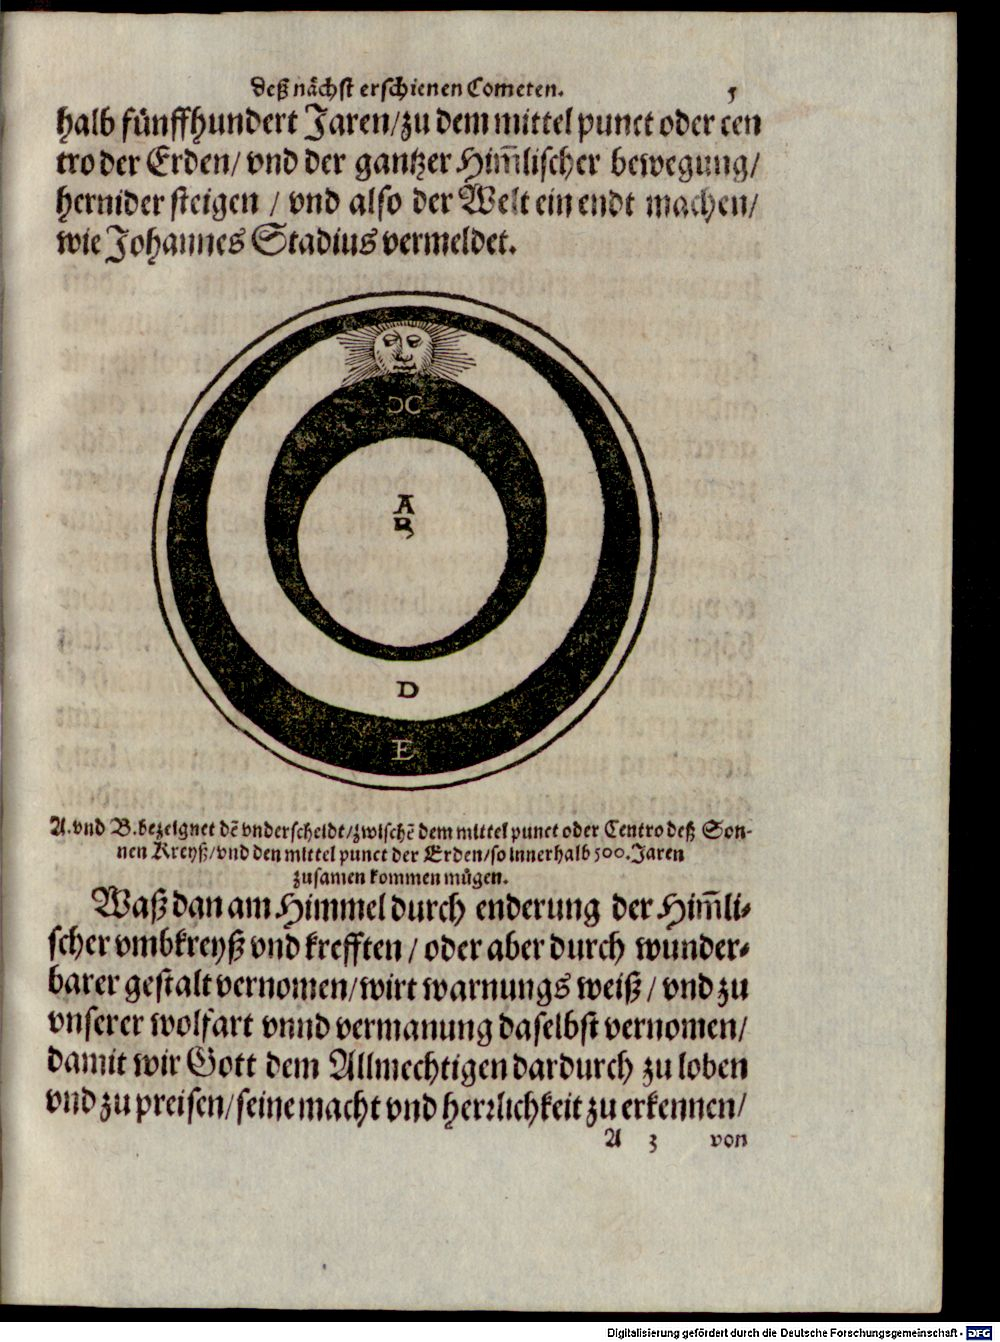 deß nächst erschienen Cometen. 5
halb fünffhundert Jaren/zu dem mittel punct oder cen
tro der Erden/ vnd der gantzer Him̃lischer bewegung/
hernider steigen / vnd also der Welt ein endt machen/
wie Johannes Stadius vermeldet.
ƆC
A
B
D
E
A. vnd B. bezeignet dẽ vnderscheidt/zwischẽ dem mittel punct oder Centro deß Son-
nen Kreyß/vnd den mittel punct der Erden/so innerhalb 500. Jaren
zusamen kommen mügen.
Waß dan am Himmel durch enderung der Him̃li-
scher vmbkreyß vnd krefften / oder aber durch wunder-
barer gestalt vernomen/wirt warnungs weiß / vnd zu
vnserer wolfart vnnd vermanung daselbst vernomen/
damit wir Gott dem Allmechtigen dardurch zu loben
vnd zu preisen/seine macht vnd herꝛlichkeit zu erkennen/
A 3 von
Digitalisierung gefördert durch die Deutsche Forschungsgemeinschaft - DFG